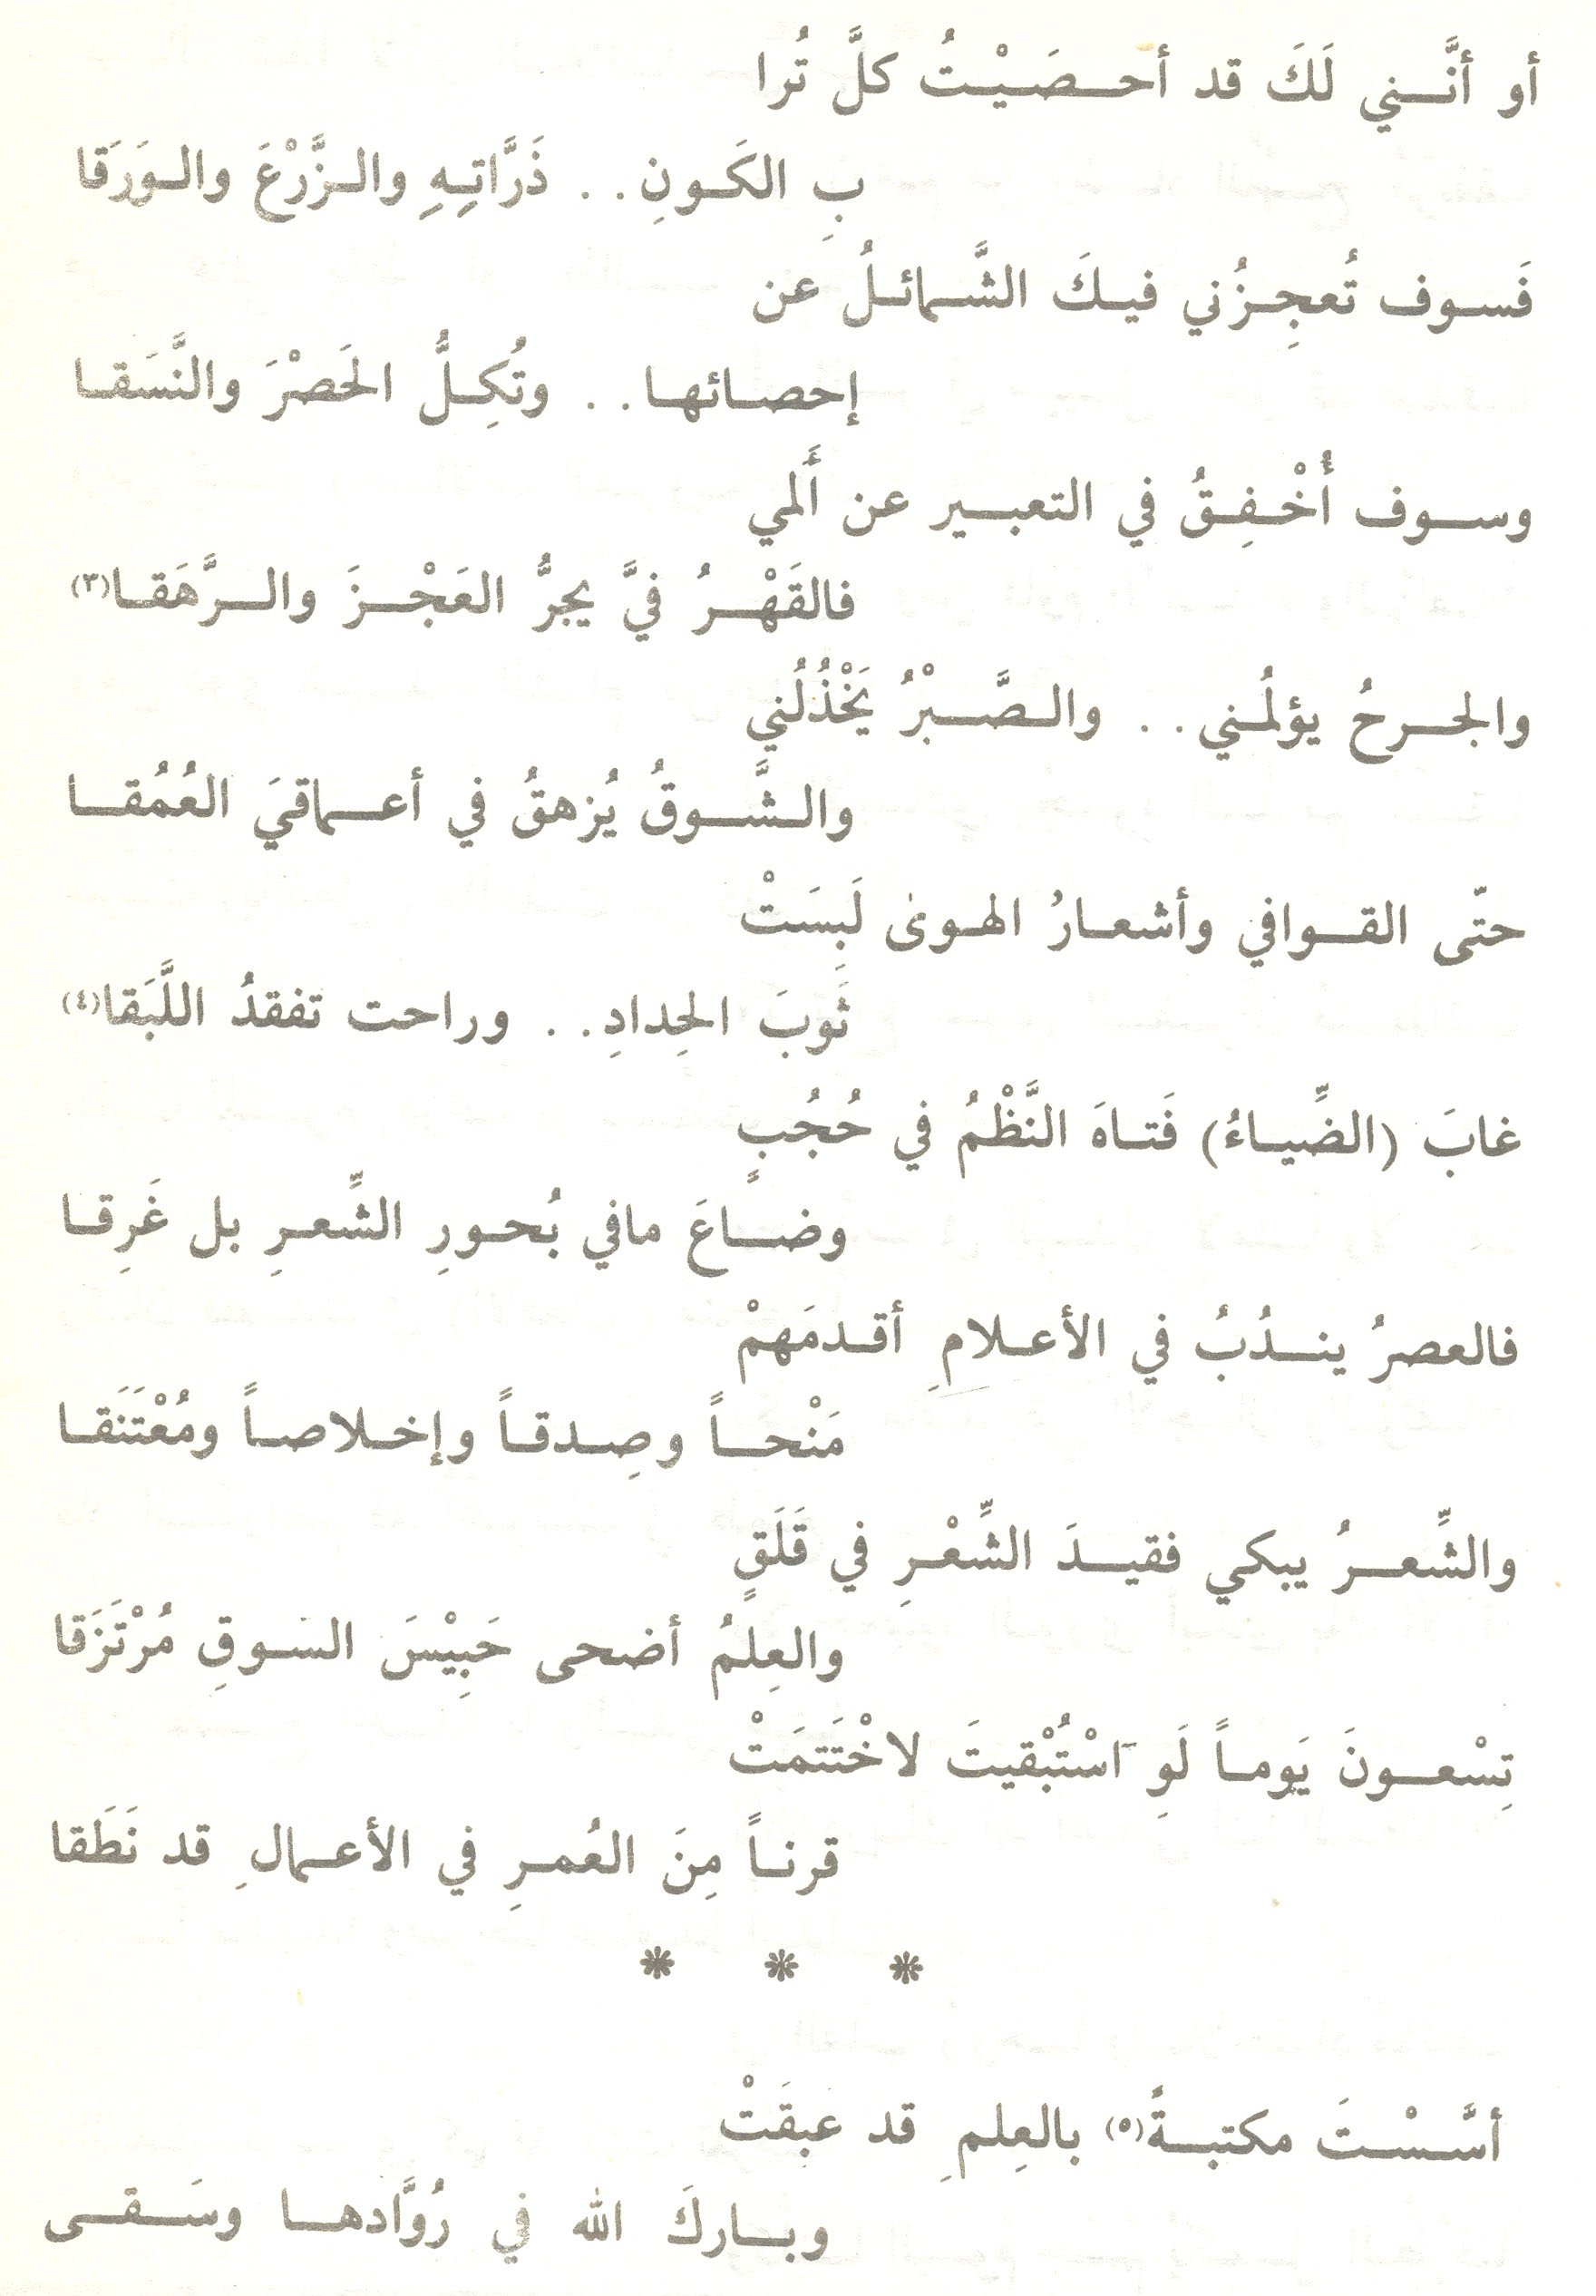 أو أنَّني لَكَ قد أحصَيْتُ كلَّ تُرا
بِ الكَونِ . . ذَرَّاتِهِ والزَّرْعَ والوَرَقا
فَسوف تُعجِزُني فيكَ الشَّمائلُ عن
إحصائها . . وتُكِلُّ الحَصْرَ والنَّسَقا
وسوف أُخْفِقُ في التعبير عن أَلمي
فالقَهْرُ فيَّ يجرُّ العَجْزَ والرَّهَقا(٣)
والجرحُ يؤلمُني . . والصَّبْرُ يَخْذُلُني
والشَّوقُ يُزهقُ في أعماقيَ العُمُقا
حتّى القوافي وأشعارُ الهوىٰ لَبِسَتْ
ثَوبَ الحِدادِ . . وراحت تفقدُ اللَّبَقا(٤)
غابَ (الضِّياءُ) فَتاهَ النَّظْمُ في حُجُبٍ
وضاعَ مافي بُحورِ الشِّعرِ بل غَرِقا
فالعصرُ يندُبُ في الأعلامِ أقدمَهمْ
مَنْحاً وصِدقاً وإخلاصاً ومُعْتَنَقا
والشِّعرُ يبكي فقيدَ الشِّعْرِ في قَلَقٍ
والعِلمُ أضحى حَبِيْسَ السوقِ مُرْتَزَقا
تِسْعونَ يَوماً لَوِ ٱسْتُبْقيتَ لاخْتَتمَتْ
قرناً مِنَ العُمرِ في الأعمالِ قد نَطَقا
* * *
أسَّسْتَ مكتبةً(٥) بالعِلمِ قد عبقَتْ
وباركَ الله في رُوَّادها وسَقى